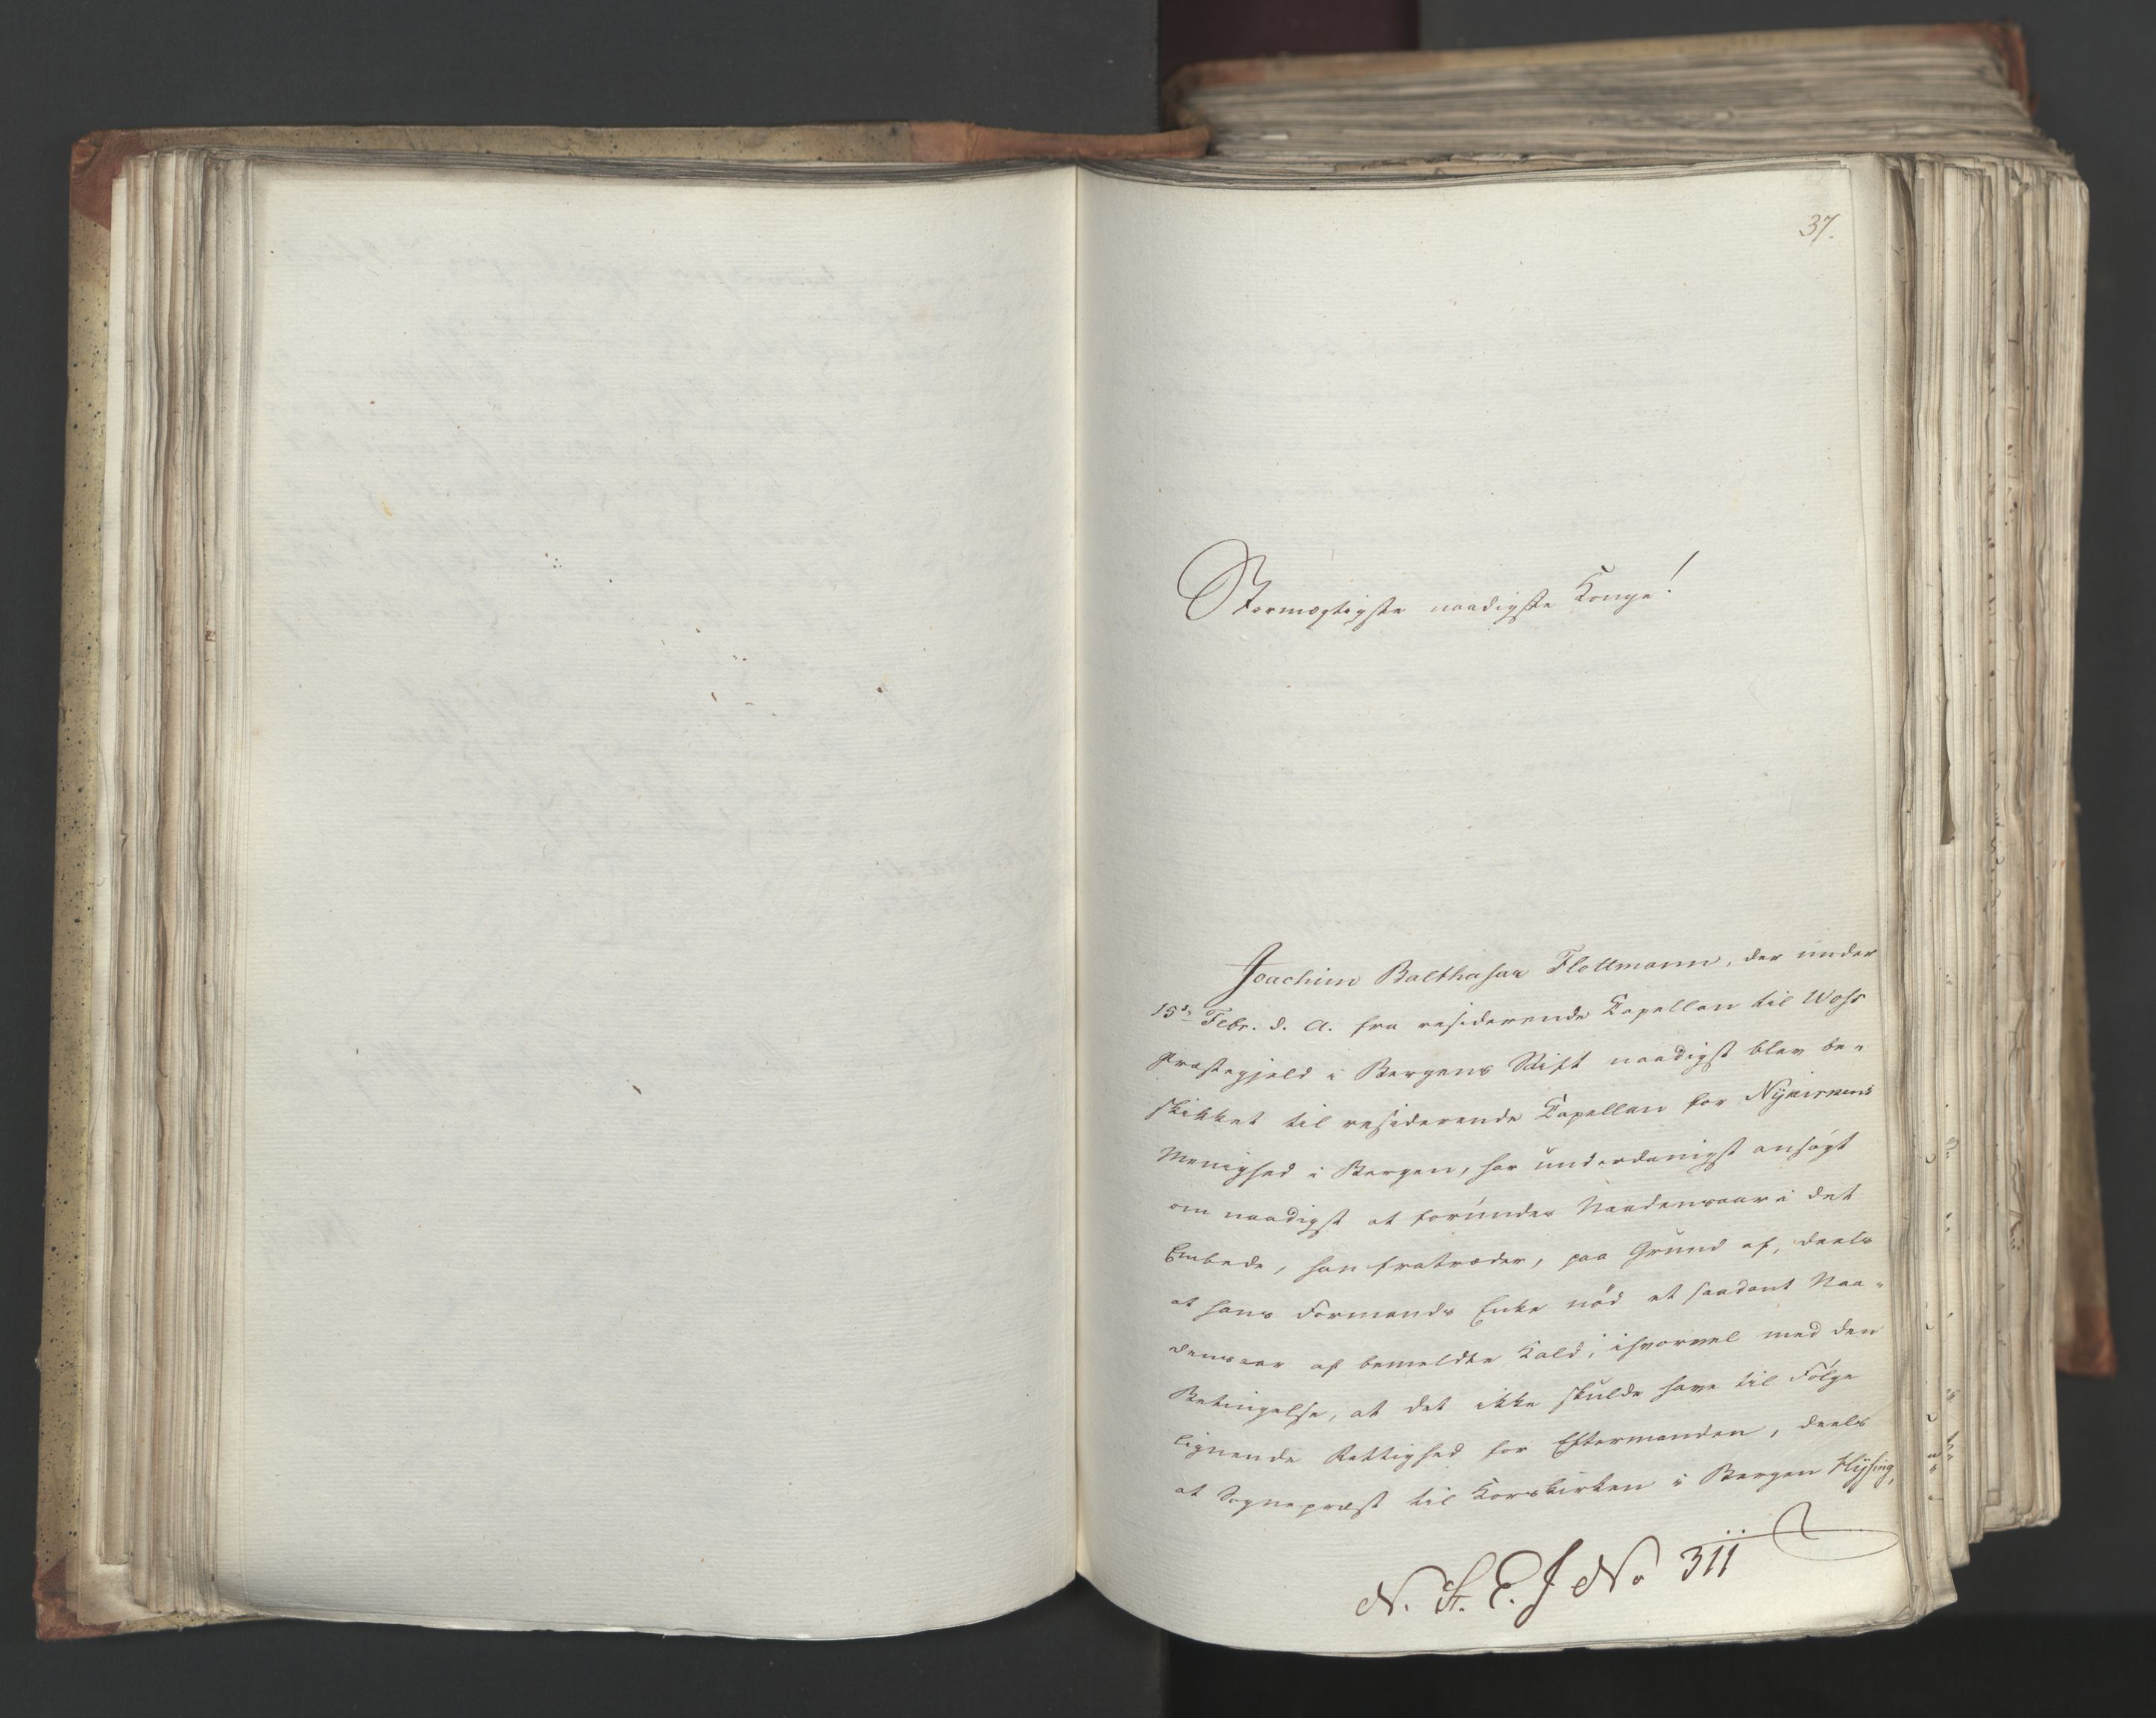 37.
Stormægtigste naadigste Konge!
Joachim Balthasar Flottmann, der under
15de Febr. d. A. fra residerende Capellan til Woss
Præstegjeld i Bergens Stift naadigst blev be-
skikket til residerende Capellan for Nykirkens
Menighed i Bergen, har underdanigst ansøgt
om naadigst at forundes Naadensaar i det
Embede, han fratræder, paa Grund af, deels
at hans Formands Enke nød et saadant Naa-
densaar af bemeldte Kald, ihvorvel med den
Betingelse, at det ikke skulde have til Følge
lignende Rettighed for Eftermanden, deels
at Sognepræst til Korskirken i Bergen Hysing,
N. St. E. J No 311